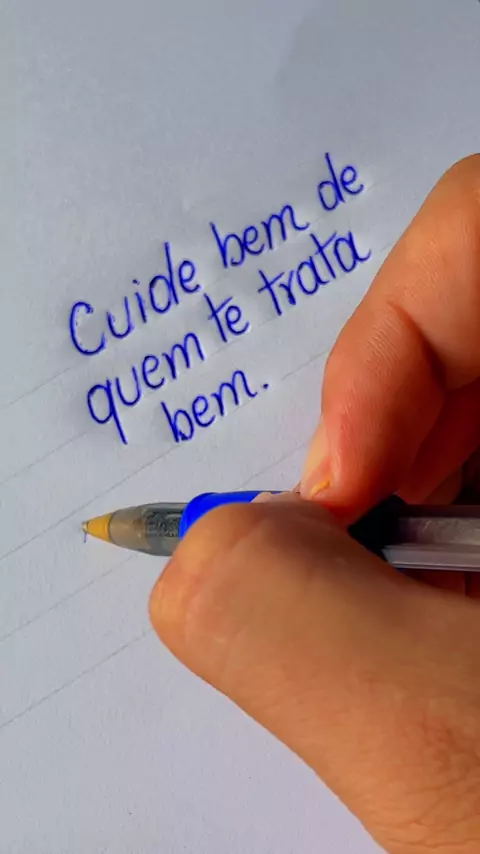 Cuide bem de
quem te trata
bem.